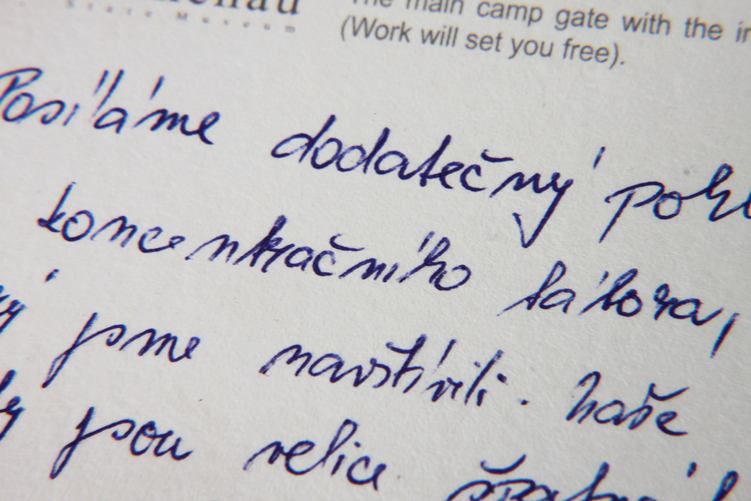 State Museum
The main camp gate with the in
(Work will set you free).
Posíláme dodatečný pohl
koncentračního tábora,
ý jsme navštívili. Naše
y jsou velice špatné